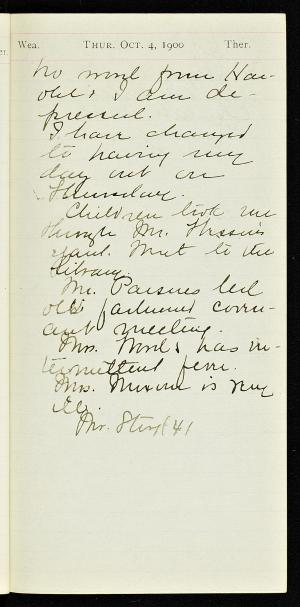 Wea. THUR. OCT. 4, 1900 Ther.
No word from Har-
old & I am de-
pressed.
I have changed
to having my
day out on
Thursday.
Children took me
through Mr.
yard. Went to the
library.
Mr. Parsons led
old fashioned coven-
ant meeting.
Mrs. Words has in-
termittent fever.
Mrs. is very
ill.
Mr. (4)